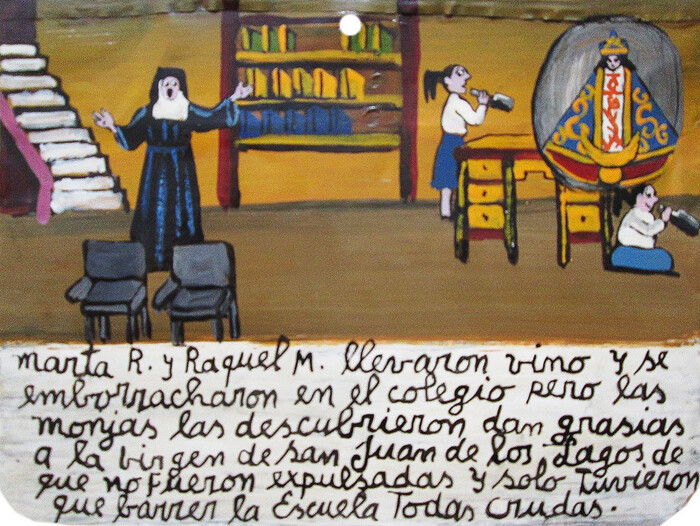 marta R. y Raquel M. llevaron vino y se
emborracharon en el colegio pero las
monjas las descubrieron dan grasias
a la birgen de san Juan de los Lagos de
que no fueron expulsadas y solo tuvieron
que barrer la Escuela Todas crudas.